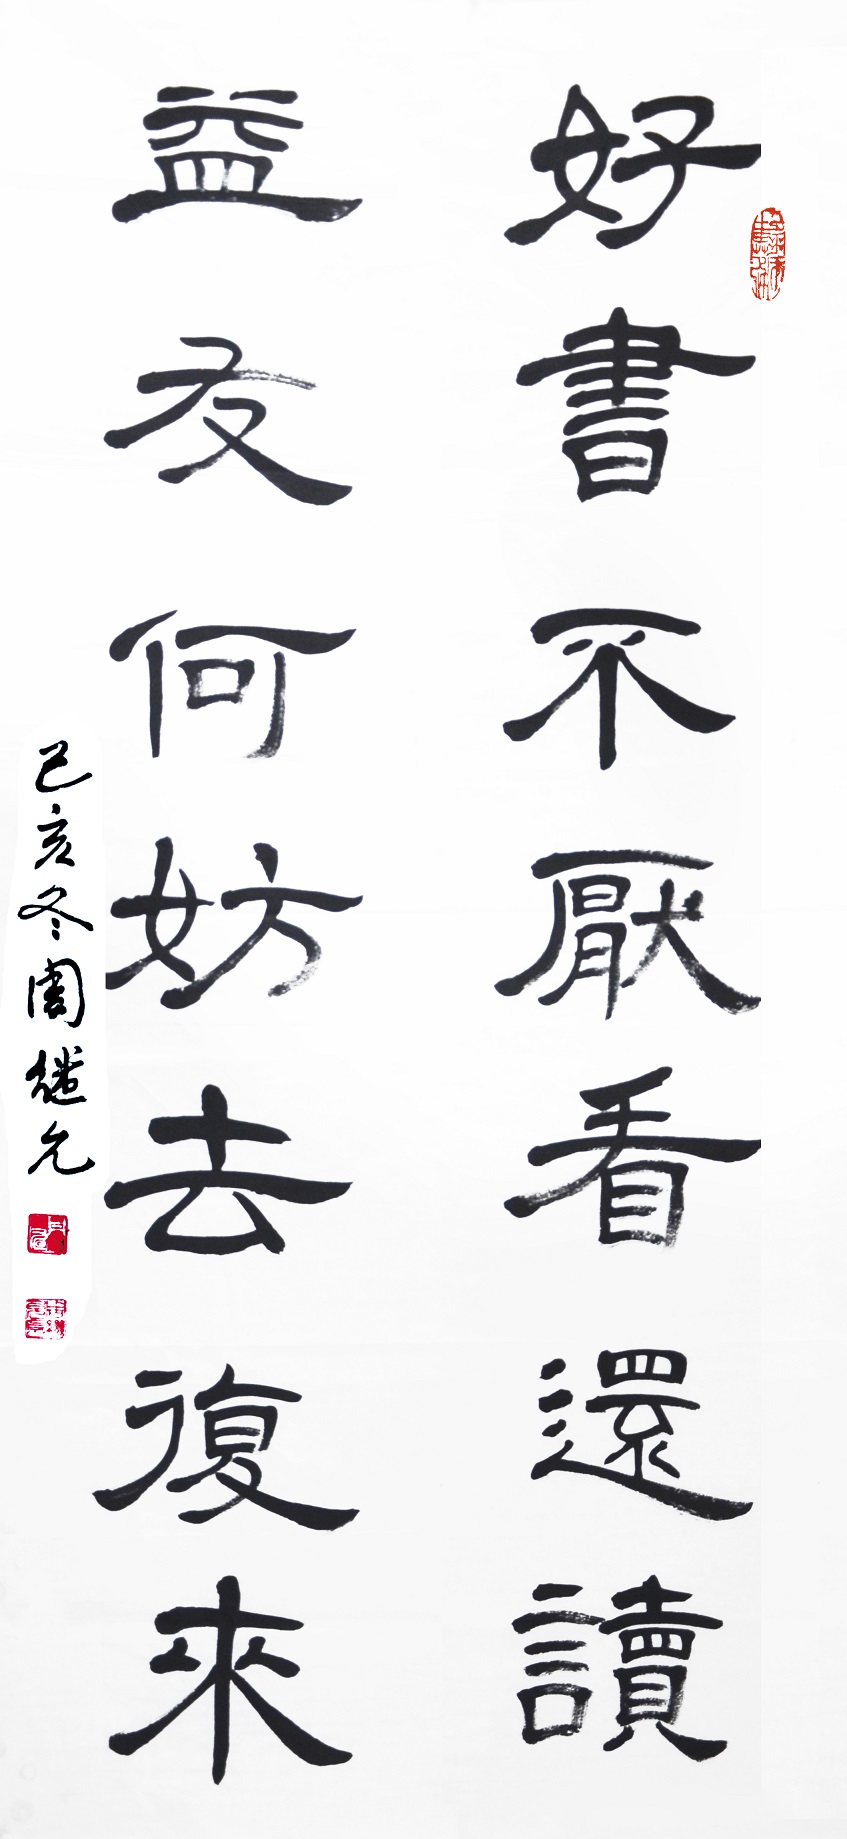 好書不厭看還讀
益友何妨去復來
己亥冬周继允